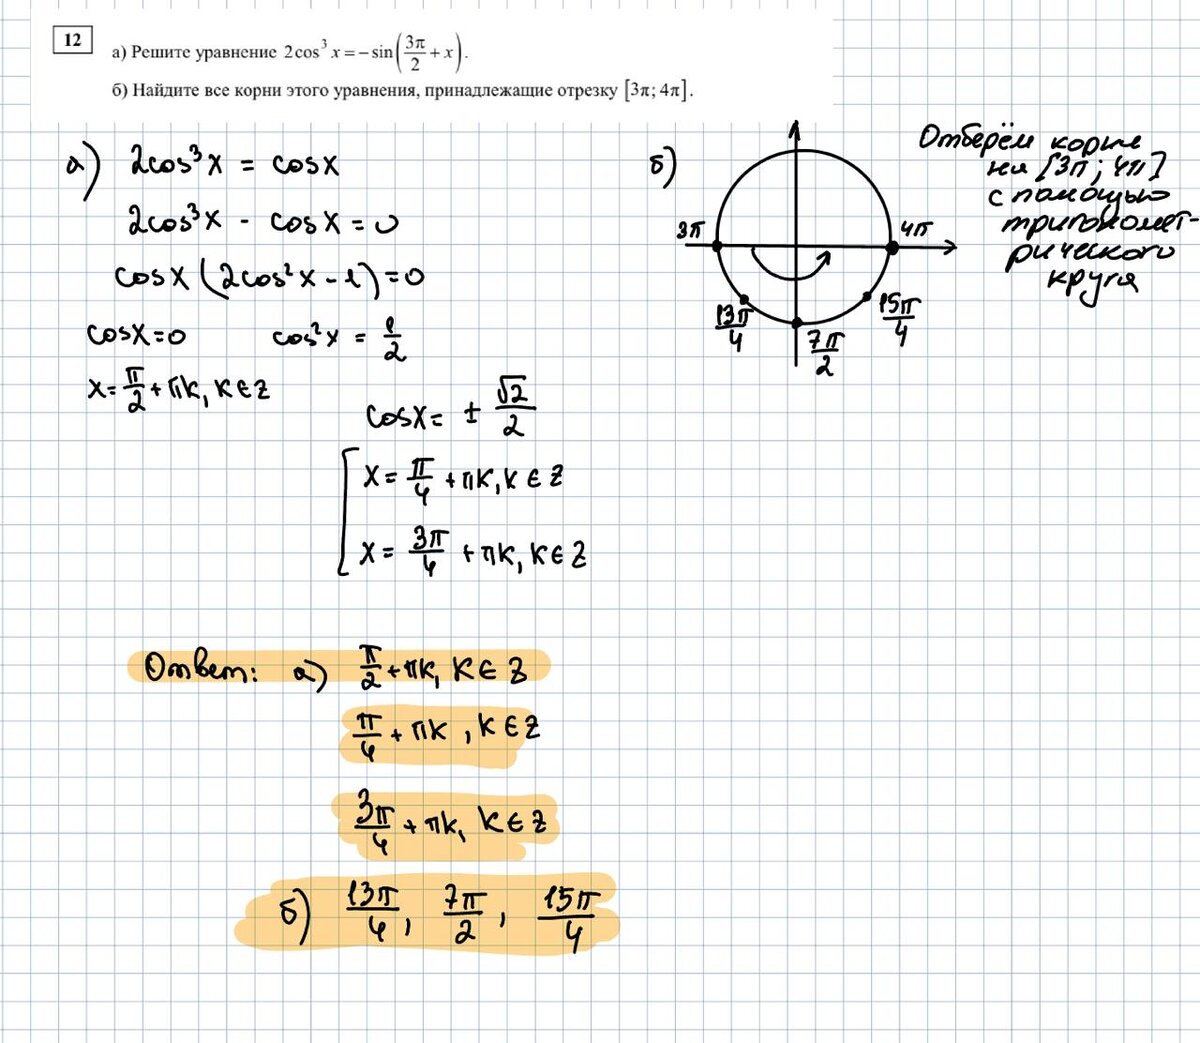 12
а) Решите уравнение 2cos³ x = −sin(3π/2 + x).
б) Найдите все корни этого уравнения, принадлежащие отрезку [3π; 4π].
а) 2cos³x = cosx
2cos³x - cosx = 0
cosx (2cos²x - 1) = 0
cosx = 0 cos²x = 1/2
x = π/2 + πk, k ∈ Z
cosx = ± √2/2
x = π/4 + πk, k ∈ Z
x = 3π/4 + πk, k ∈ Z
б)
3π 4π
13π/4 7π/2 15π/4
Отберём корни
на [3π; 4π]
с помощью
тригономет-
рического
круга
Ответ: а) π/2 + πk, k ∈ Z
π/4 + πk, k ∈ Z
3π/4 + πk, k ∈ Z
б) 13π/4, 7π/2, 15π/4